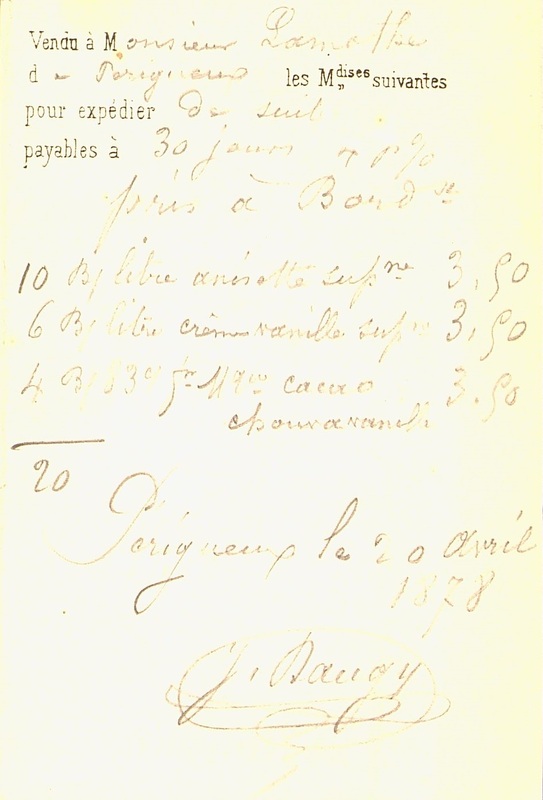 Vendu à Monsieur Lamothe
de Perigueux les Mdises suivantes
pour expédier de suite
payables à 30 jours %
pris à Bord
10 B/ litre anisette supne 3,50
6 B/ litre crème vanille supne 3,50
4 B/ cacao 3,50
chouva vanille
20
Périgueux le 20 avril
1878
J. Baugy